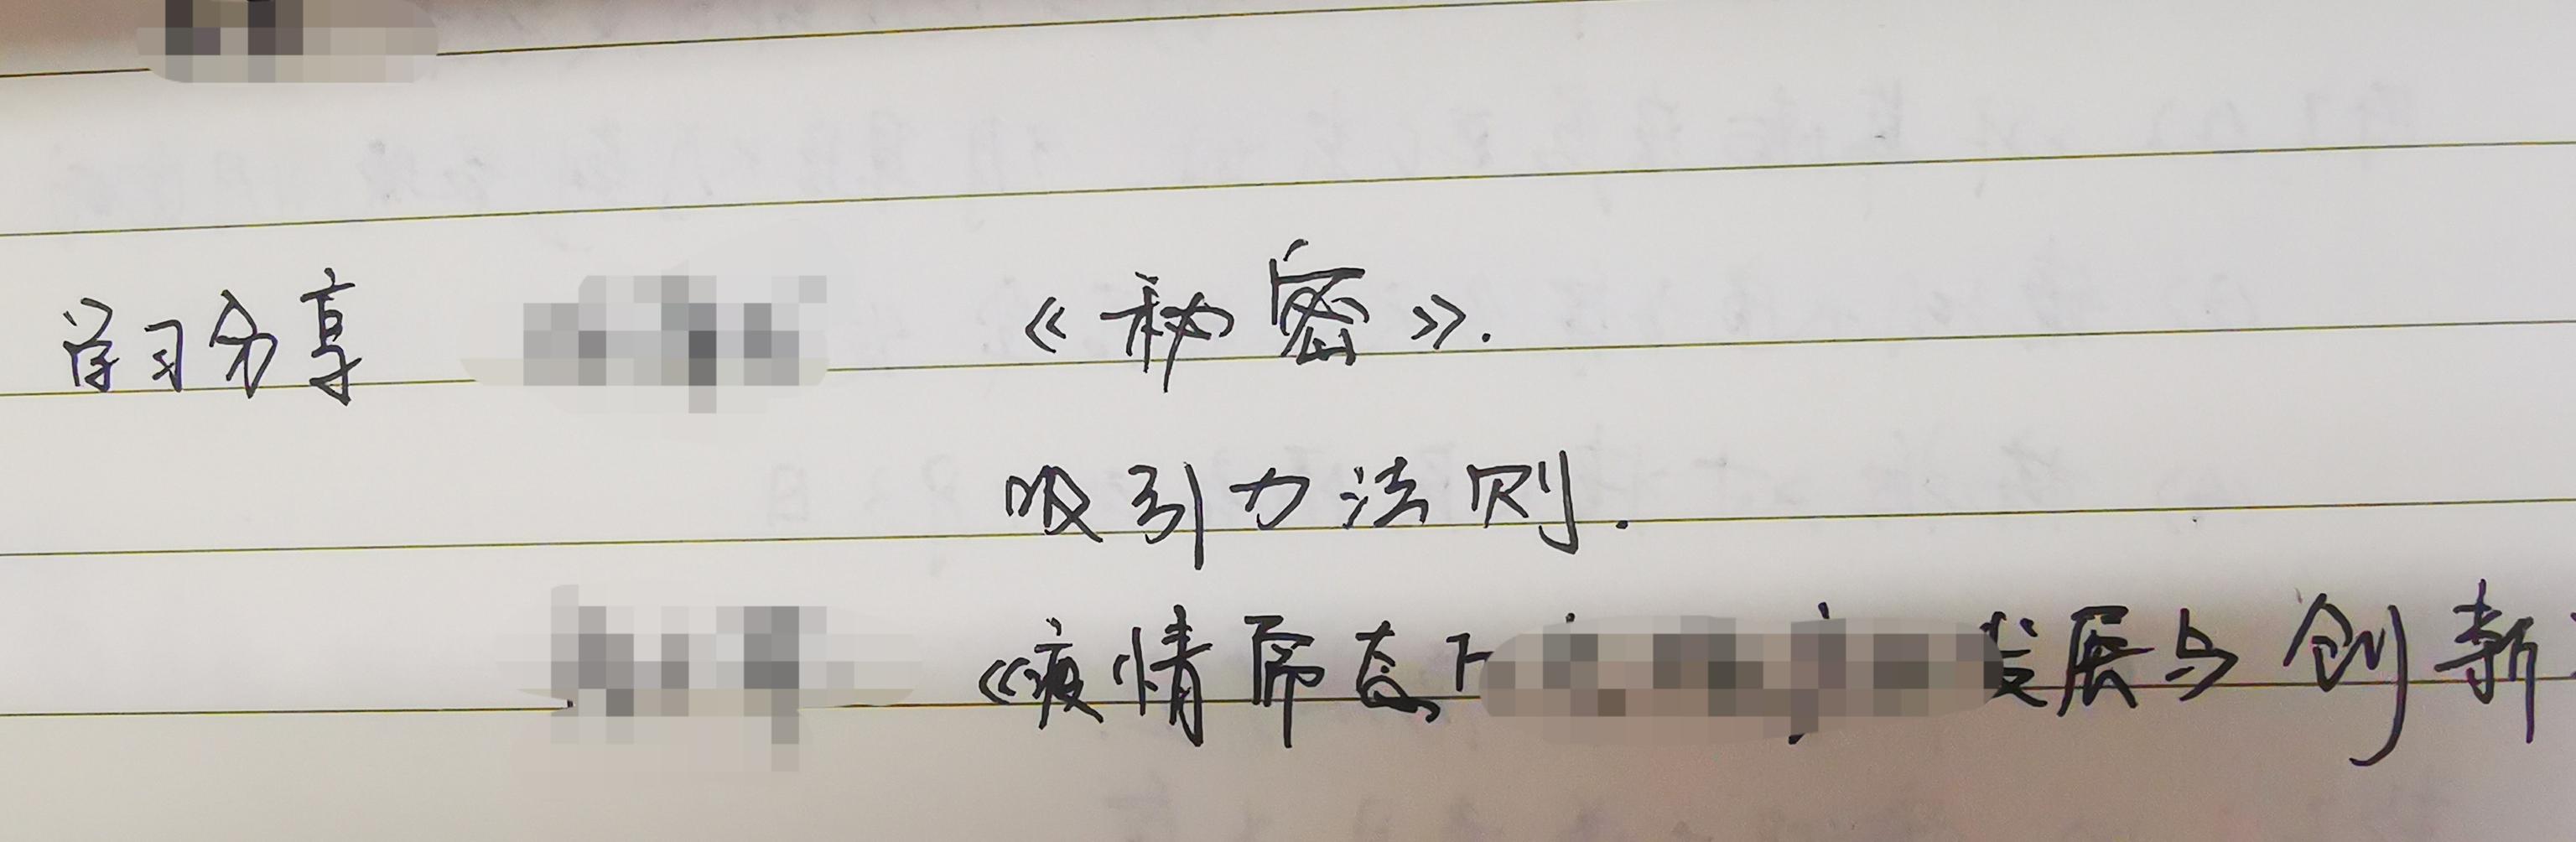 学习分享 《秘密》.
吸引力法则.
《疫情常态下 发展与创新